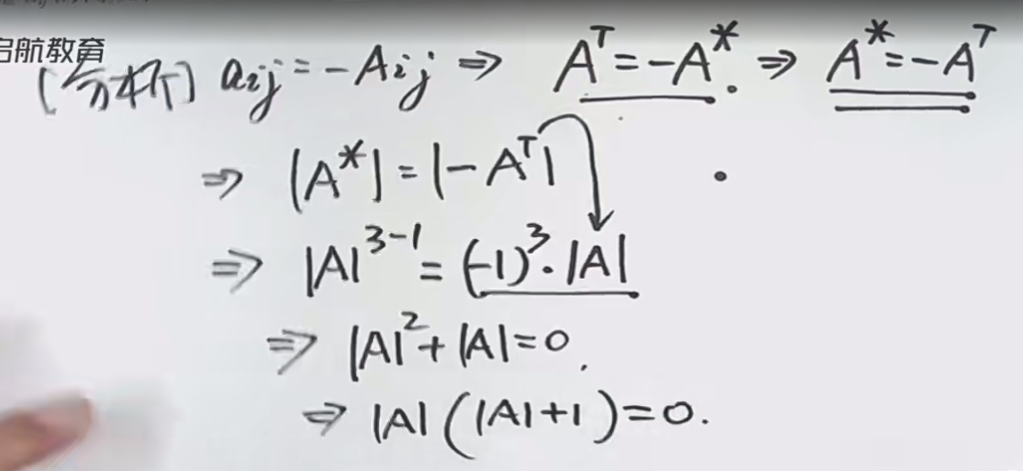 启航教育
[分析] aij = -Aij ⇒ A^T = -A^*. ⇒ A^* = -A^T
⇒ |A^*| = |-A^T|
⇒ |A|^{3-1} = (-1)^3·|A|
⇒ |A|^2 + |A| = 0.
⇒ |A|(|A|+1) = 0.